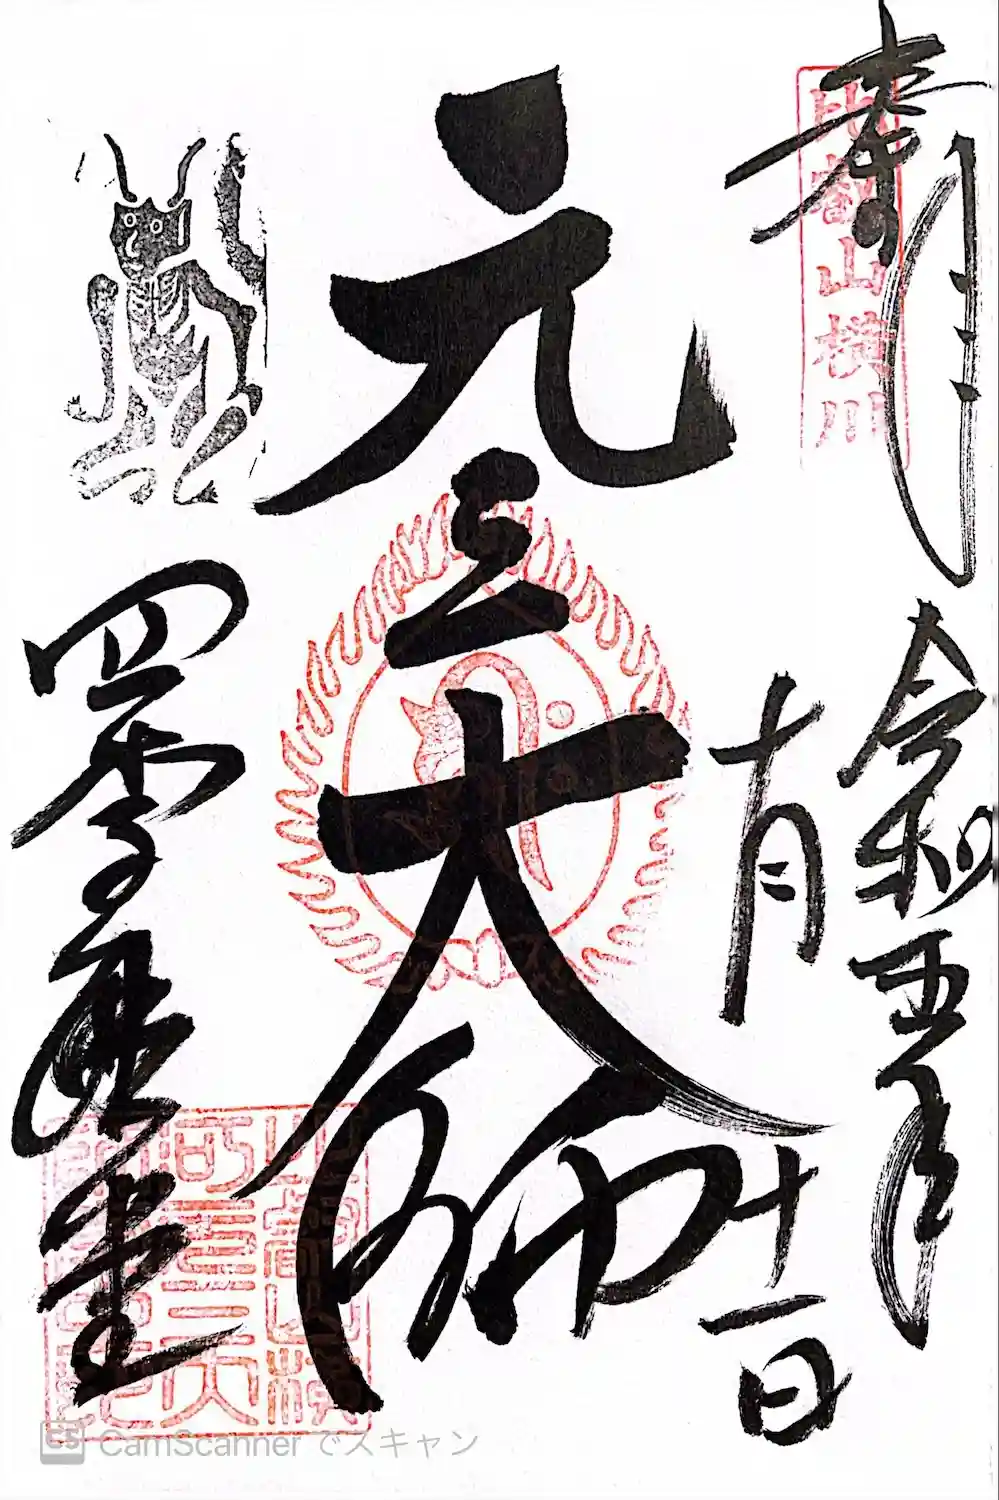 奉拝
比叡山横川
令和五年
十月
十一日
元三大師
四季講堂
CamScanner でスキャン